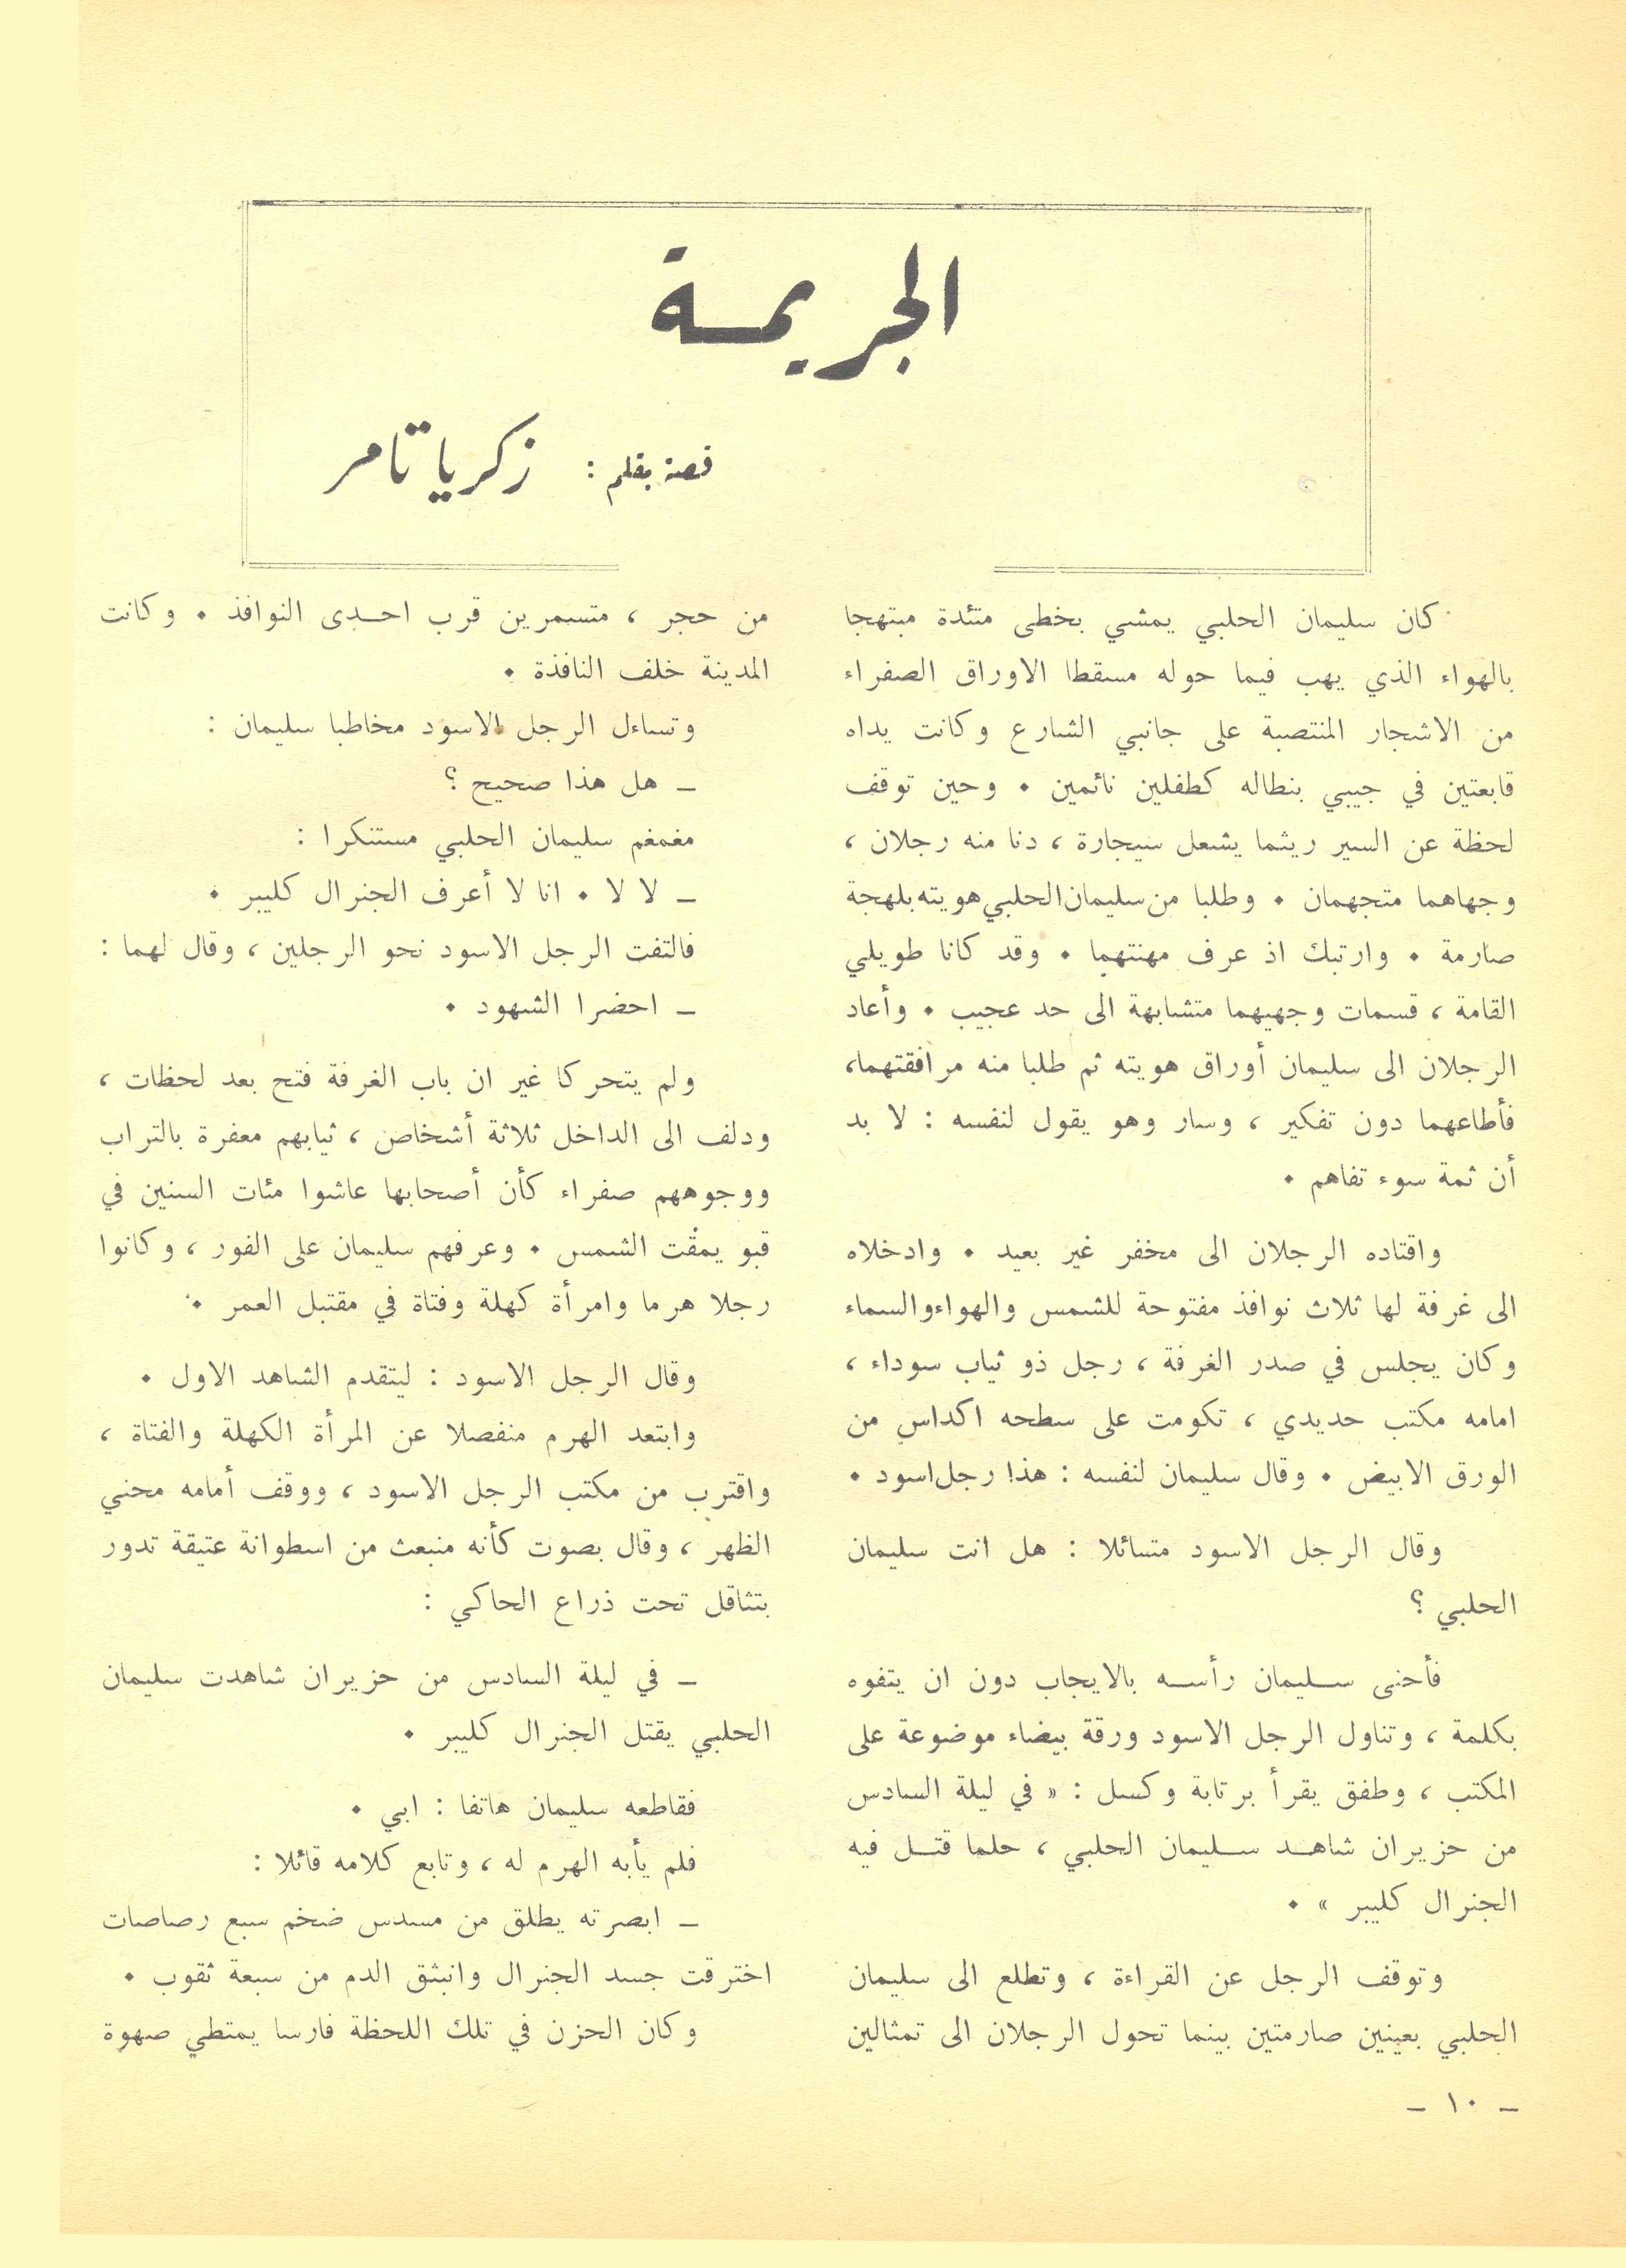 الجريمة
قصة بقلم : زكريا تامر
كان سليمان الحلبي يمشي بخطى متئدة مبتهجا
بالهواء الذي يهب فيما حوله مسقطا الاوراق الصفراء
من الاشجار المنتصبة على جانبي الشارع وكانت يداه
قابعتين في جيبي بنطاله كطفلين نائمين . وحين توقف
لحظة عن السير ريثما يشعل سيجارة ، دنا منه رجلان ،
وجهاهما متجهمان . وطلبا من سليمان الحلبي هويته بلهجة
صارمة . وارتبك اذ عرف مهنتهما . وقد كانا طويلي
القامة ، قسمات وجهيهما متشابهة الى حد عجيب . وأعاد
الرجلان الى سليمان أوراق هويته ثم طلبا منه مرافقتهما،
فأطاعهما دون تفكير ، وسار وهو يقول لنفسه : لا بد
أن ثمة سوء تفاهم .
واقتاده الرجلان الى مخفر غير بعيد . وادخلاه
الى غرفة لها ثلاث نوافذ مفتوحة للشمس والهواء والسماء
وكان يجلس في صدر الغرفة ، رجل ذو ثياب سوداء ،
امامه مكتب حديدي ، تكومت على سطحه اكداس من
الورق الابيض . وقال سليمان لنفسه : هذا رجل اسود .
وقال الرجل الاسود متسائلا : هل انت سليمان
الحلبي ؟
فأحنى سليمان رأسه بالايجاب دون ان يتفوه
بكلمة ، وتناول الرجل الاسود ورقة بيضاء موضوعة على
المكتب ، وطفق يقرأ برتابة وكسل : « في ليلة السادس
من حزيران شاهد سليمان الحلبي ، حلما قتل فيه
الجنرال كليبر » .
وتوقف الرجل عن القراءة ، وتطلع الى سليمان
الحلبي بعينين صارمتين بينما تحول الرجلان الى تمثالين
من حجر ، متسمرين قرب احدى النوافذ . وكانت
المدينة خلف النافذة .
وتساءل الرجل الاسود مخاطبا سليمان :
ـ هل هذا صحيح ؟
مغمغم سليمان الحلبي مستنكرا :
ـ لا لا . انا لا أعرف الجنرال كليبر .
فالتفت الرجل الاسود نحو الرجلين ، وقال لهما :
ـ احضرا الشهود .
ولم يتحركا غير ان باب الغرفة فتح بعد لحظات ،
ودلف الى الداخل ثلاثة أشخاص ، ثيابهم معفرة بالتراب
ووجوههم صفراء كأن أصحابها عاشوا مئات السنين في
قبو يمقت الشمس . وعرفهم سليمان على الفور ، وكانوا
رجلا هرما وامرأة كهلة وفتاة في مقتبل العمر .
وقال الرجل الاسود : ليتقدم الشاهد الاول .
وابتعد الهرم منفصلا عن المرأة الكهلة والفتاة ،
واقترب من مكتب الرجل الاسود ، ووقف أمامه محني
الظهر ، وقال بصوت كأنه منبعث من اسطوانة عتيقة تدور
بتثاقل تحت ذراع الحاكي :
ـ في ليلة السادس من حزيران شاهدت سليمان
الحلبي يقتل الجنرال كليبر .
فقاطعه سليمان هاتفا : ابي .
فلم يأبه الهرم له ، وتابع كلامه قائلا :
ـ ابصرته يطلق من مسدس ضخم سبع رصاصات
اخترقت جسد الجنرال وانبثق الدم من سبعة ثقوب .
وكان الحزن في تلك اللحظة فارسا يمتطي صهوة
ـ ١٠ ـ